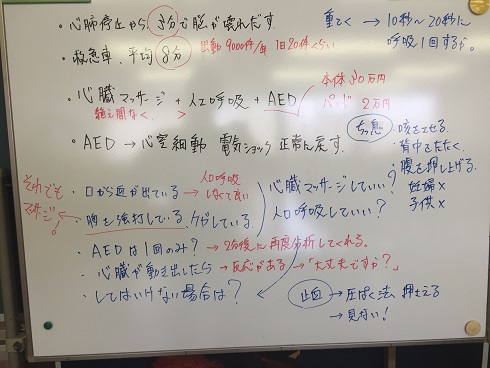 ・心肺停止から、3分で脳が壊れだす。
・救急車、平均8分
出動9000件/年 1日20件くらい
重てく → 10秒～20秒に
呼吸1回するか。
・心臓マッサージ + 人工呼吸 + AED
絶え間なく、
本体30万円
パッド 2万円
・AED → 心室細動 電気ショック 正常に戻す。
ちっ息
・咳をさせる。
・背中をたたく。
・腹を押し上げる。
妊婦×
子供×
それでも
マッサージ!
・口から血が出ている
→ 人工呼吸
しなくて良い
・胸を強打している、ケガしている
心臓マッサージしていい?
人工呼吸していい?
・AEDは1回のみ? → 2分後に再度分析してくれる。
・心臓が動き出したら → 反応がある → 「大丈夫ですか?」
・してはいけない場合は?
止血 → 圧ぱく法 押さえる
→ 見ない!